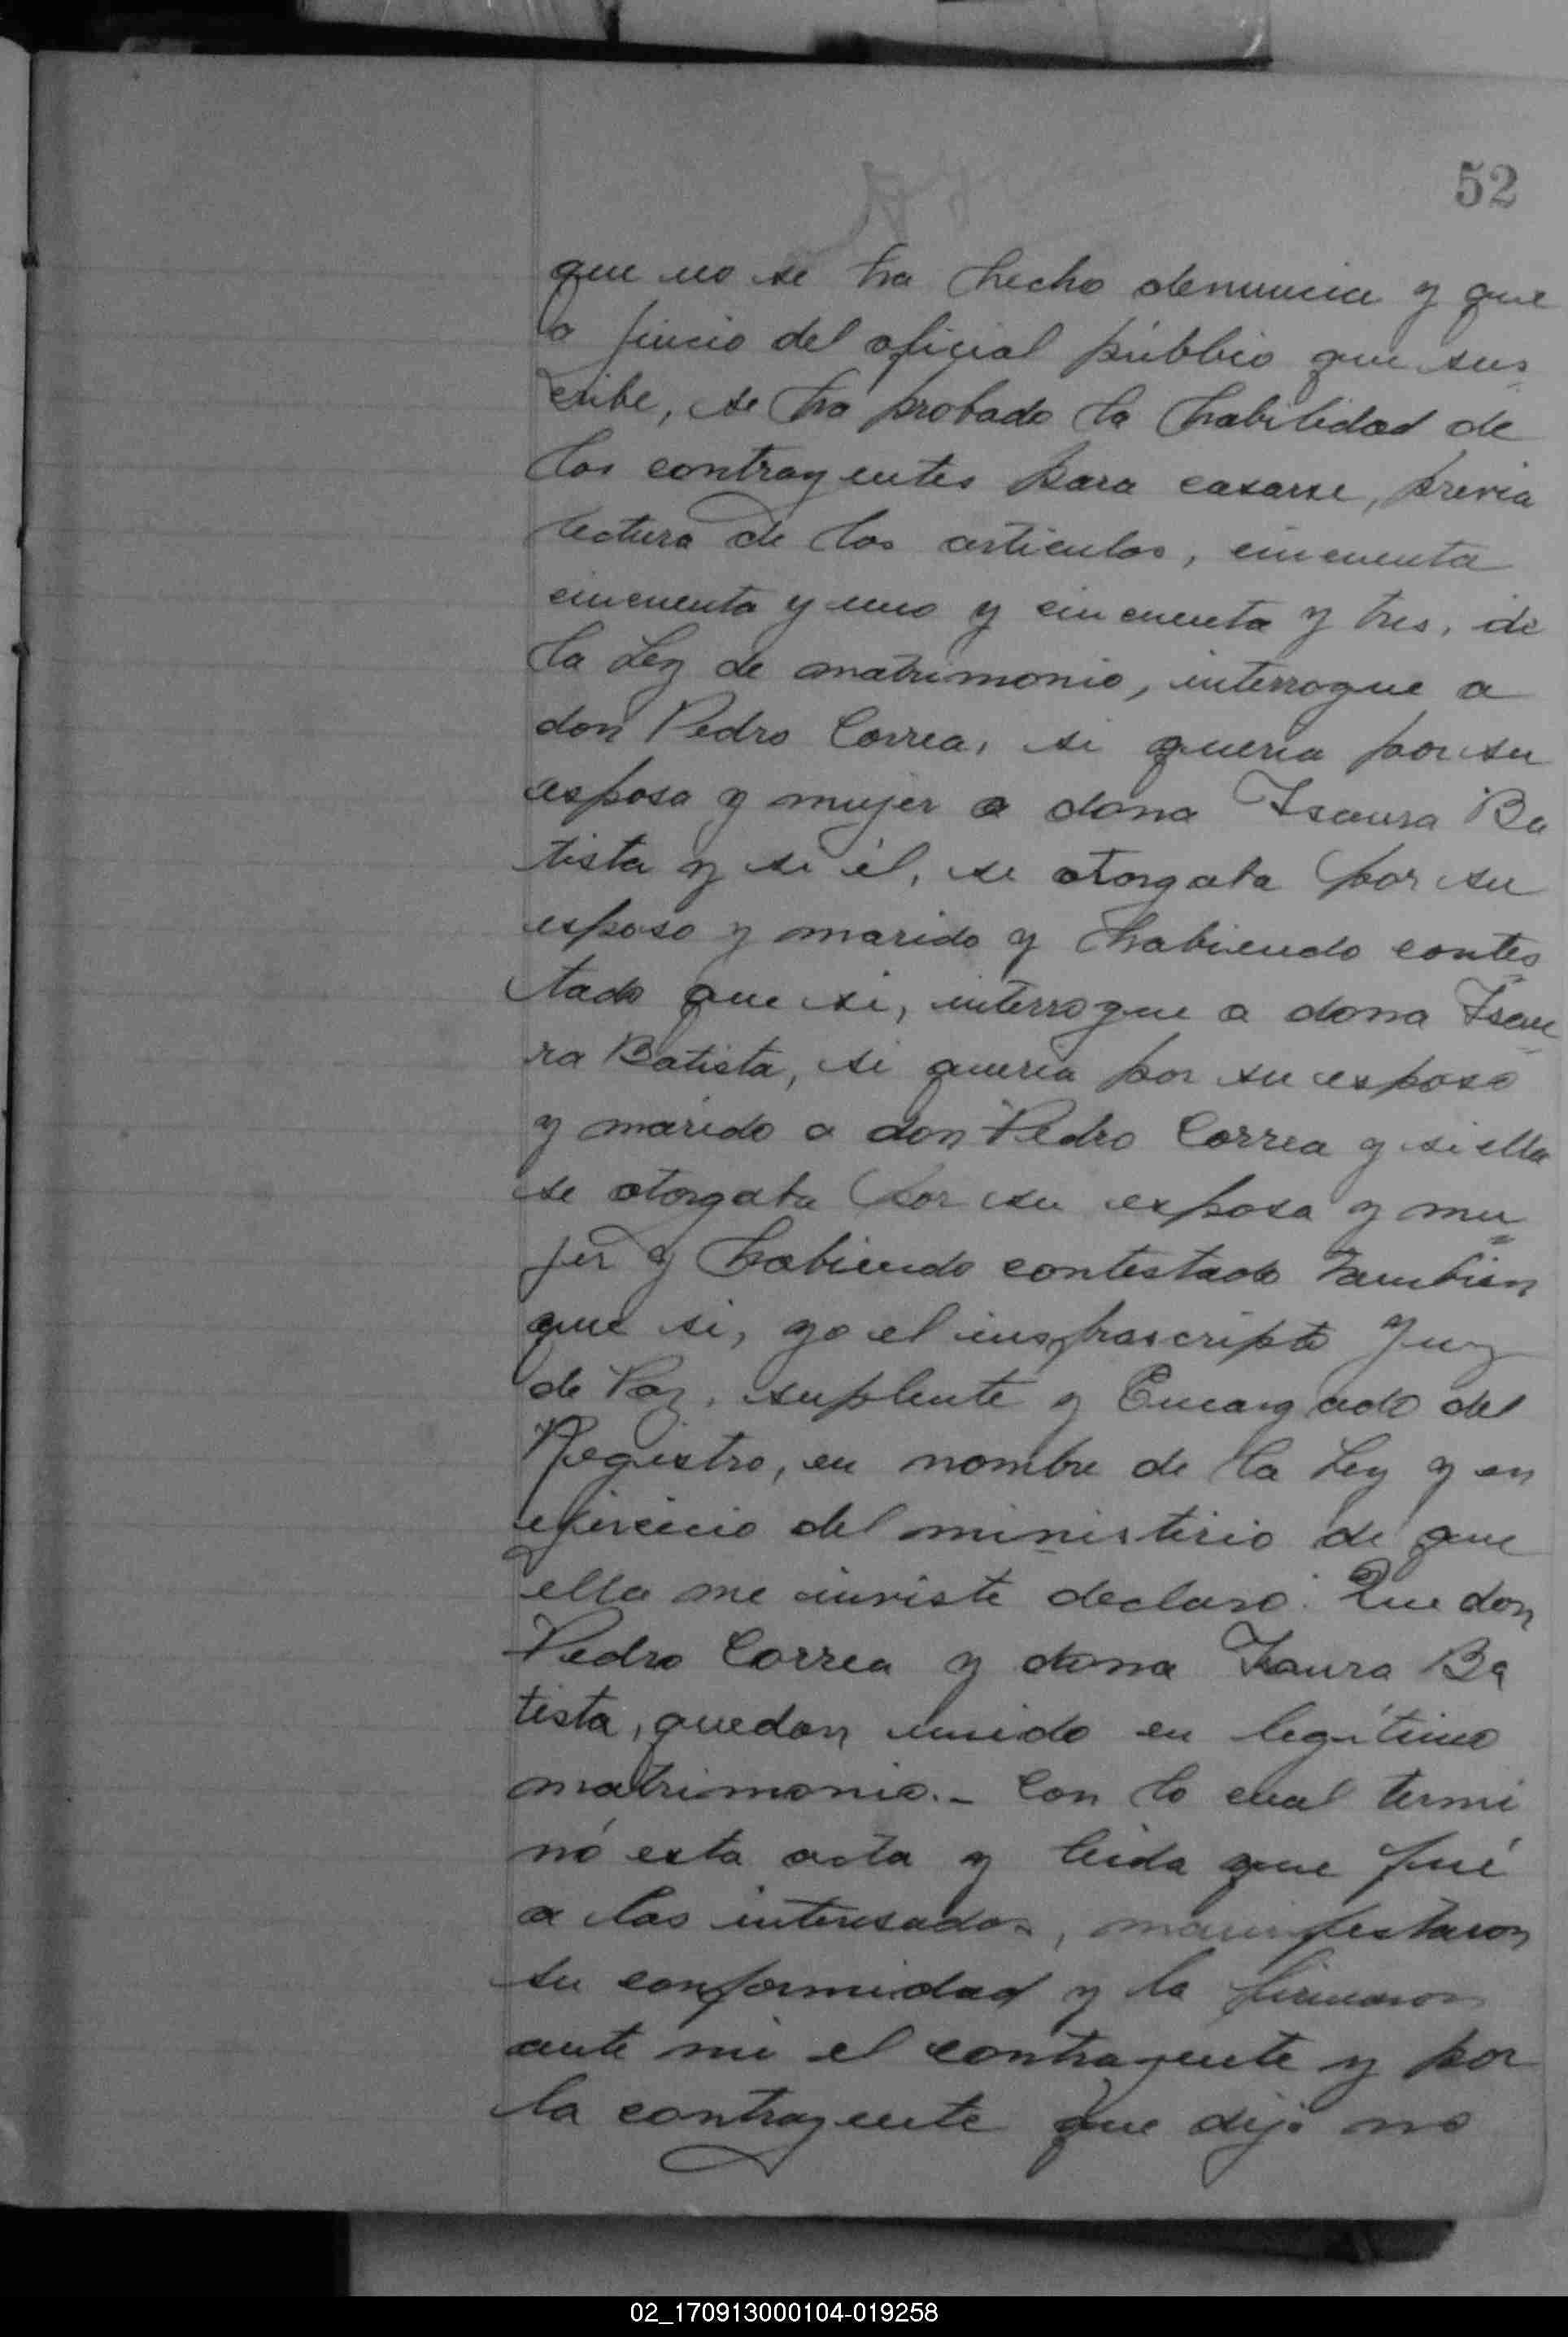 52
que no se ha hecho denuncia y que
a juicio del oficial público que sus
cribe, se ha probado la habilidad de
los contrayentes para casarse, previa
lectura de los articulos, cincuenta
cincuenta y uno y cincuenta y tres, de
la Ley de matrimonio, interrogue a
don Pedro Correa, si queria por su
esposa y mujer a dona Isaura Ba
tista y si él, se otorgaba por su
esposo y marido y habiendo contes
tado que si, interrogue a dona Isau
ra Batista, si queria por su esposo
y marido a don Pedro Correa y si ella
se otorgaba por su esposa y mu
jer y habiendo contestado tambien
que si, yo el insfrascripto Juez
de Paz, suplente y Encargado del
Registro, en nombre de la Ley y en
ejercicio del ministerio de que
ella me inviste declaro: Que don
Pedro Correa y dona Isaura Ba
tista, quedan unido en legítimo
matrimonio.- Con lo cual termi
nó esta acta y leida que fué
a los interesados, manifestaron
su conformidad y la firmaron
ante mi el contrayente y por
la contrayente que dijo no
02_170913000104-019258